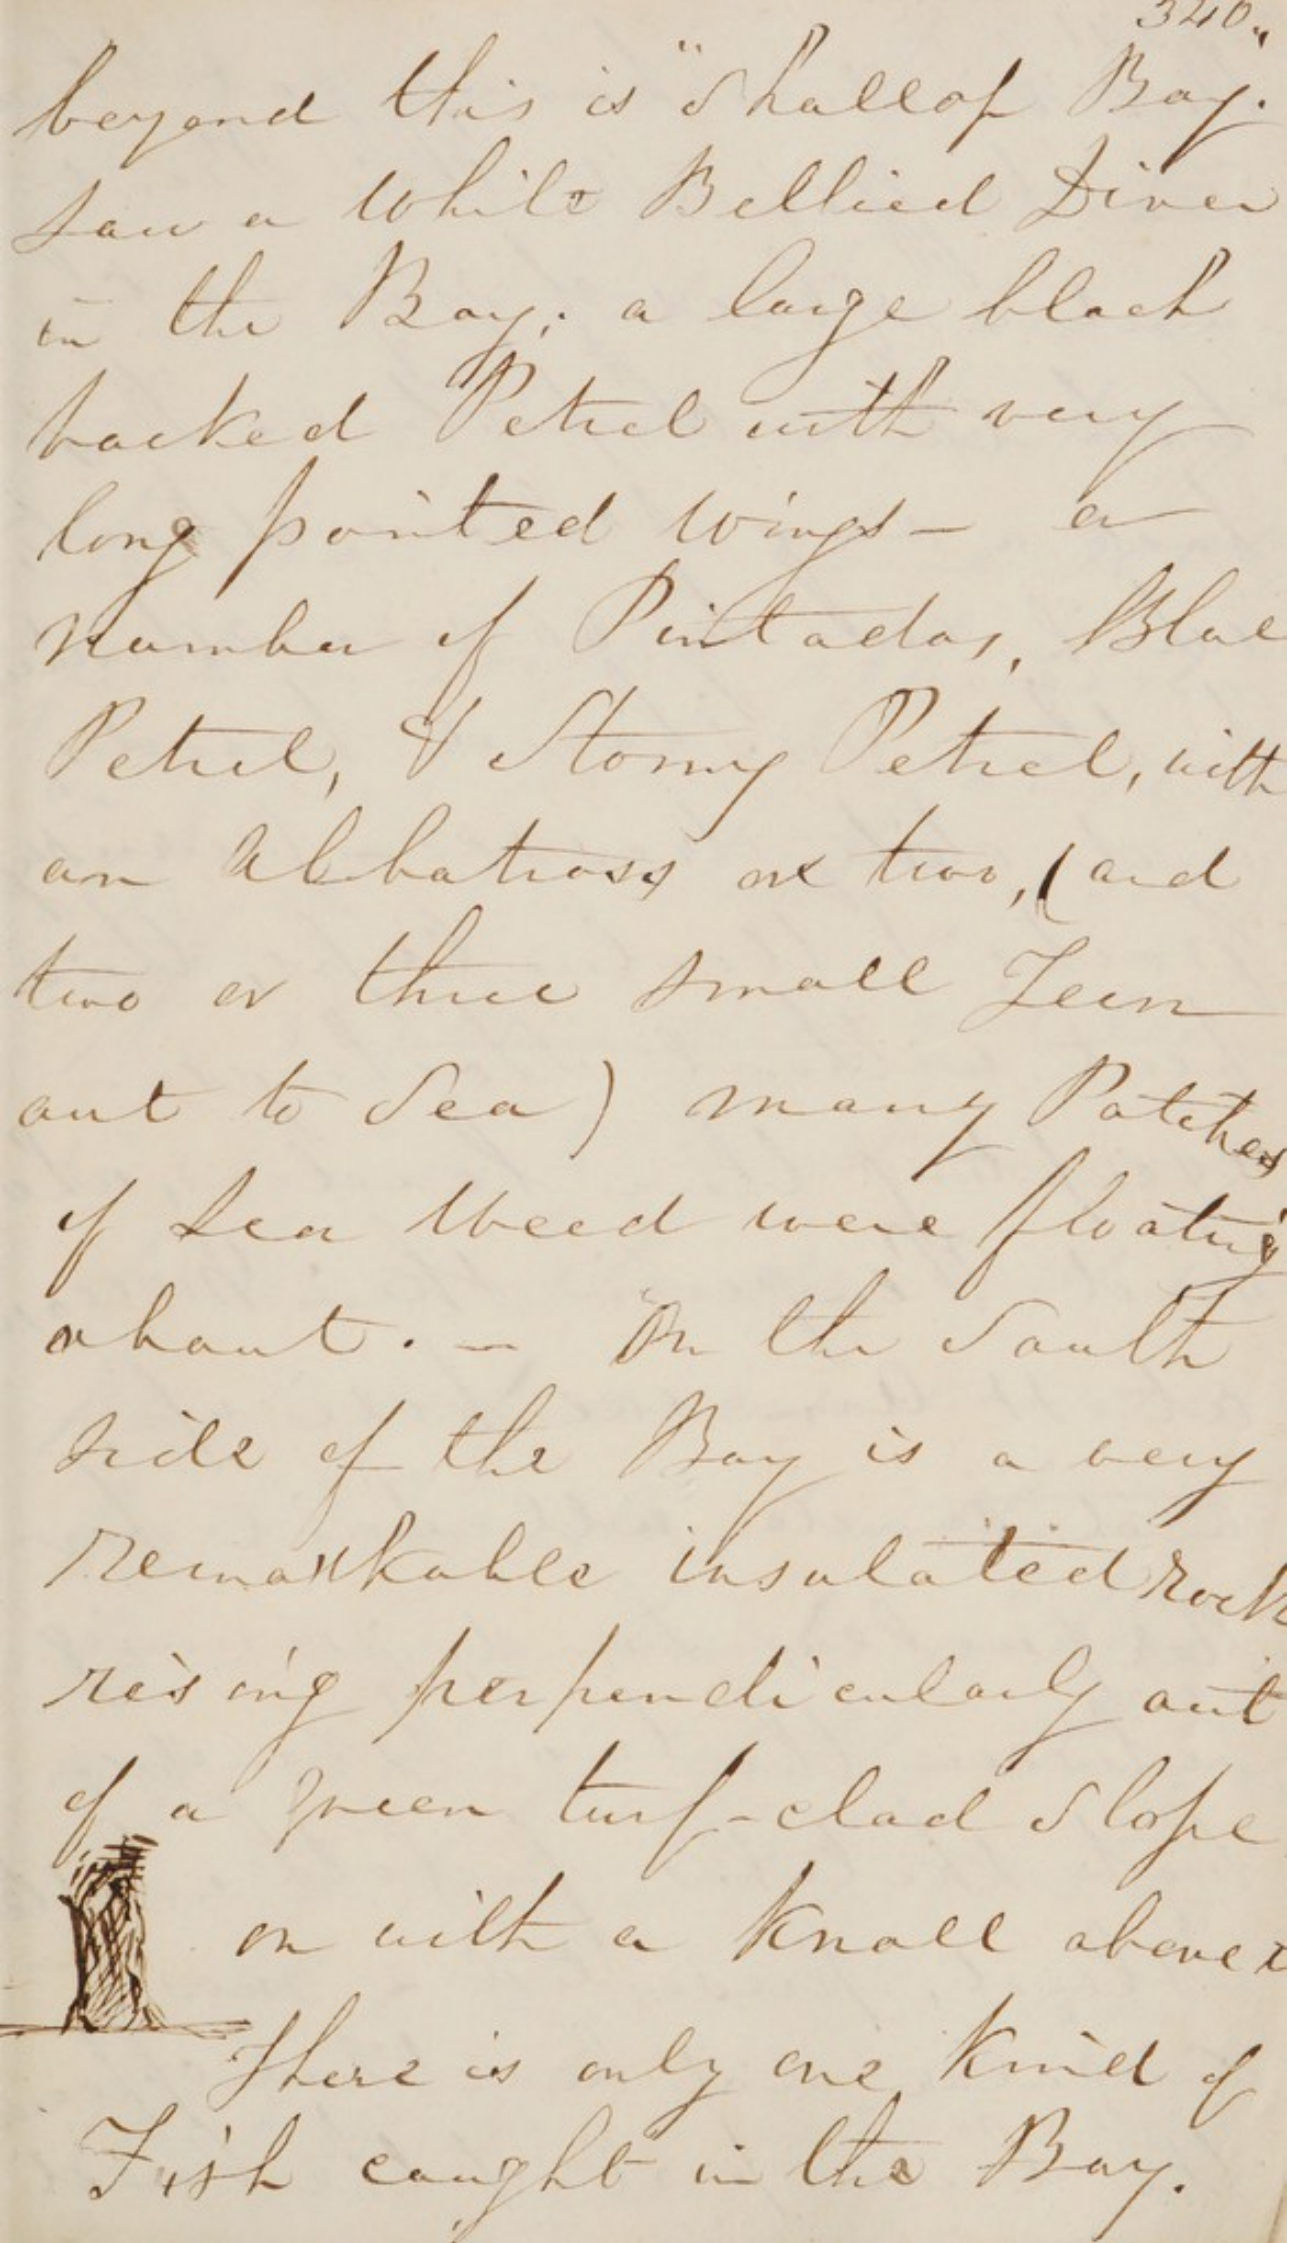 340"
beyond this is "Shallop Bay.
saw a White Bellied Diver
in the Bay; a large black
backed Petrel with very
long pointed wings — a
number of Pintados, Blue
Petrel, & Stormy Petrel, with
an Albatross or two, (and
two or three small Tern
out to Sea) many Patches
of Sea Weed were floating
about. — On the South
side of the Bay is a very
remarkable insulated rock
rising perpendicularly out
of a green turf-clad slope
on with a Knoll above
There is only one Kind of
Fish caught in the Bay.